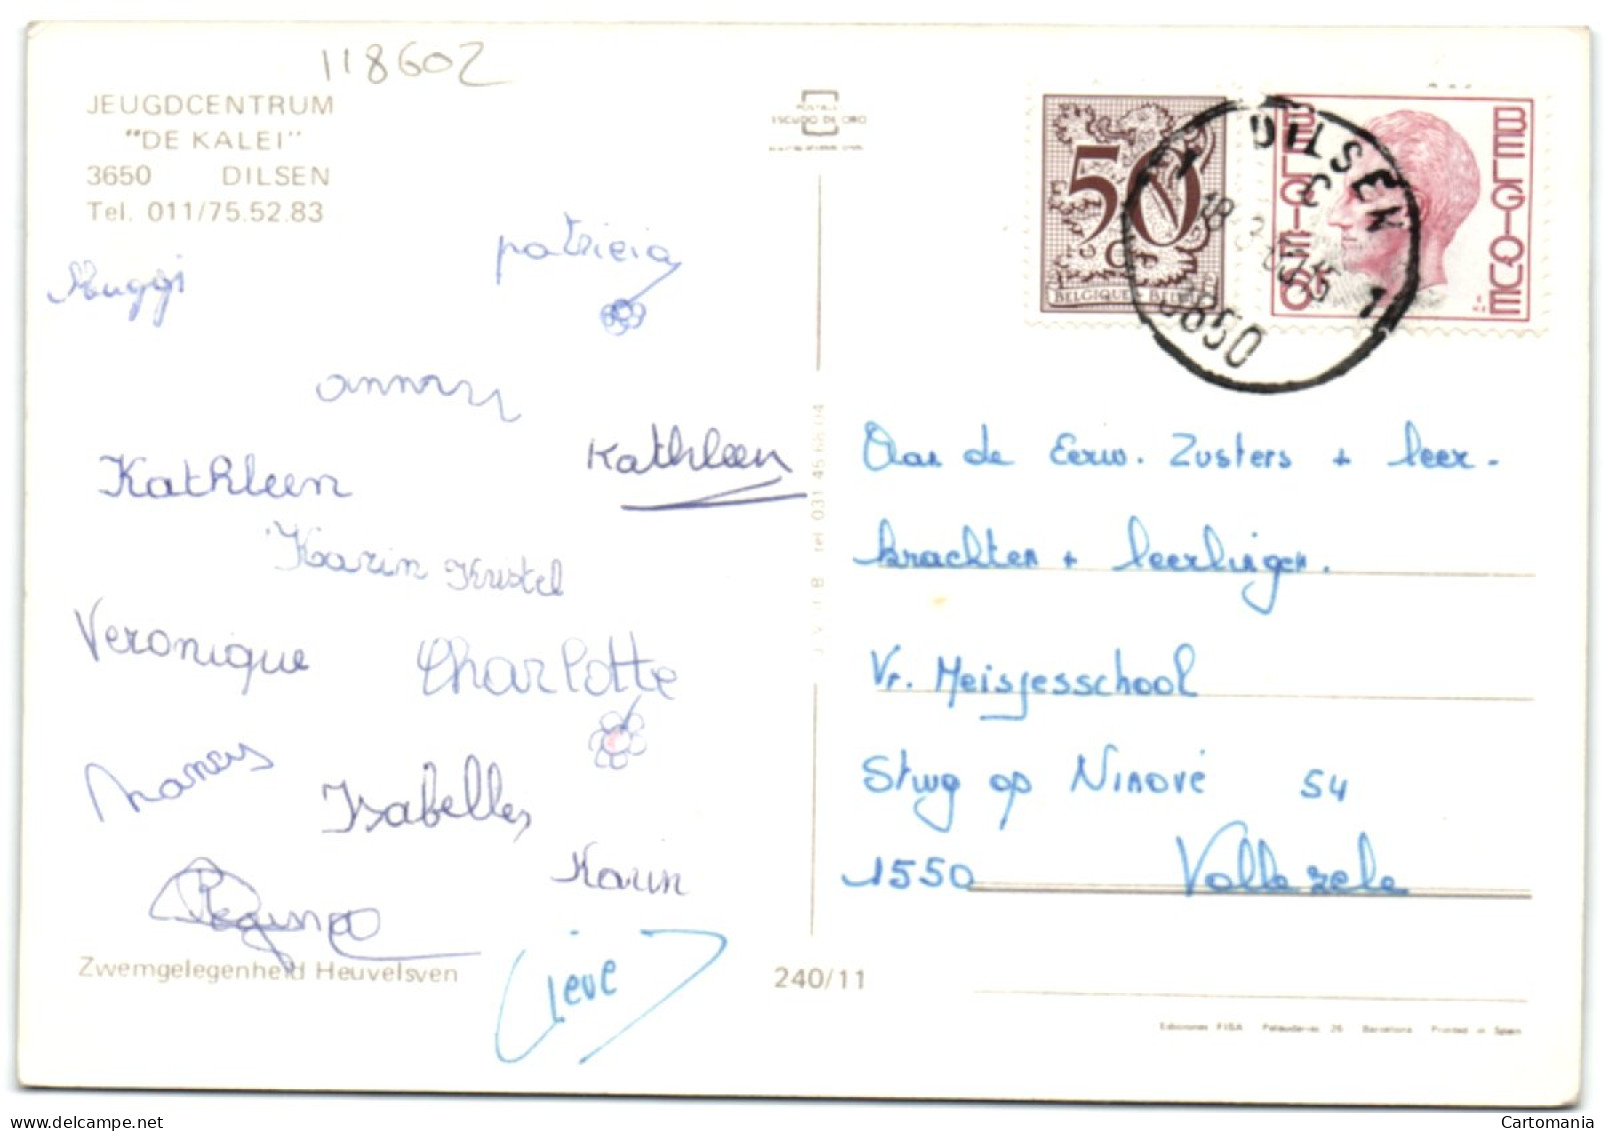 118602
JEUGDCENTRUM
"DE KALEI"
3650 DILSEN
Tel. 011/75.52.83
Muggi
patricia
Kathleen
Kathleen
Karin Kristel
Veronique
Charlotte
Isabelle
Karin
Regina
Lieve
Zwemgelegenheid Heuvelsven
240/11
ESCUDO DE ORO
tel 031 45 68 04
50
BELGIQUE
BELGIË
BELGIQUE
DILSEN
C
18
3650
1
Aan de Eerw. Zusters + leer-
krachten + leerlingen.
Vr. Meisjesschool
Stwg op Ninove 54
1550 Vollezele
Ediciones FISA Palaudarias 26 Barcelona Printed in Spain
Cartomania